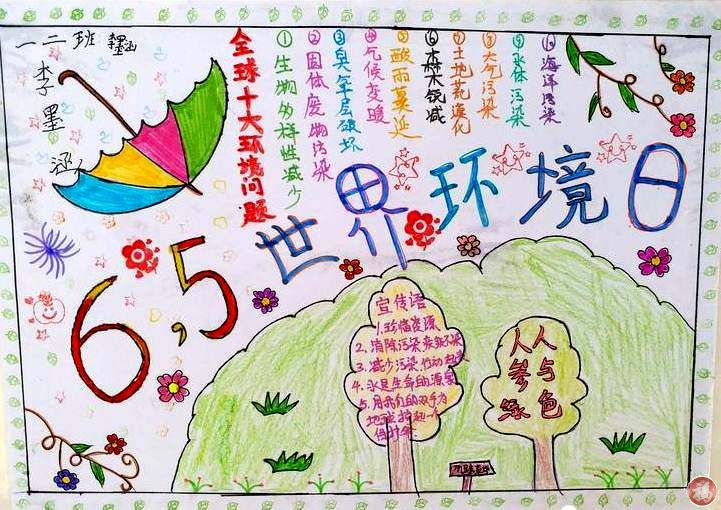 一二班
李墨涵
全球十大环境问题
①生物多样性减少
②固体废物污染
③臭氧层破坏
④气候变暖
⑤酸雨蔓延
⑥森林锐减
⑦土地荒漠化
⑧大气污染
⑨水体污染
⑩海洋污染
6,5
世界环境日
宣传语
1.珍惜资源
2.消除污染
3.减少污染 行动起来
4.水是生命的源泉
5.用我们的双手为
地球撑起一个
人人
参与
绿色
福